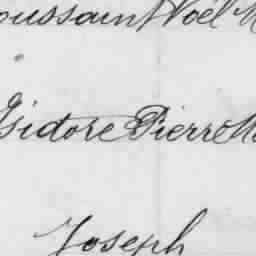 oussaint Noël M
Isidore Pierre Ma
Joseph